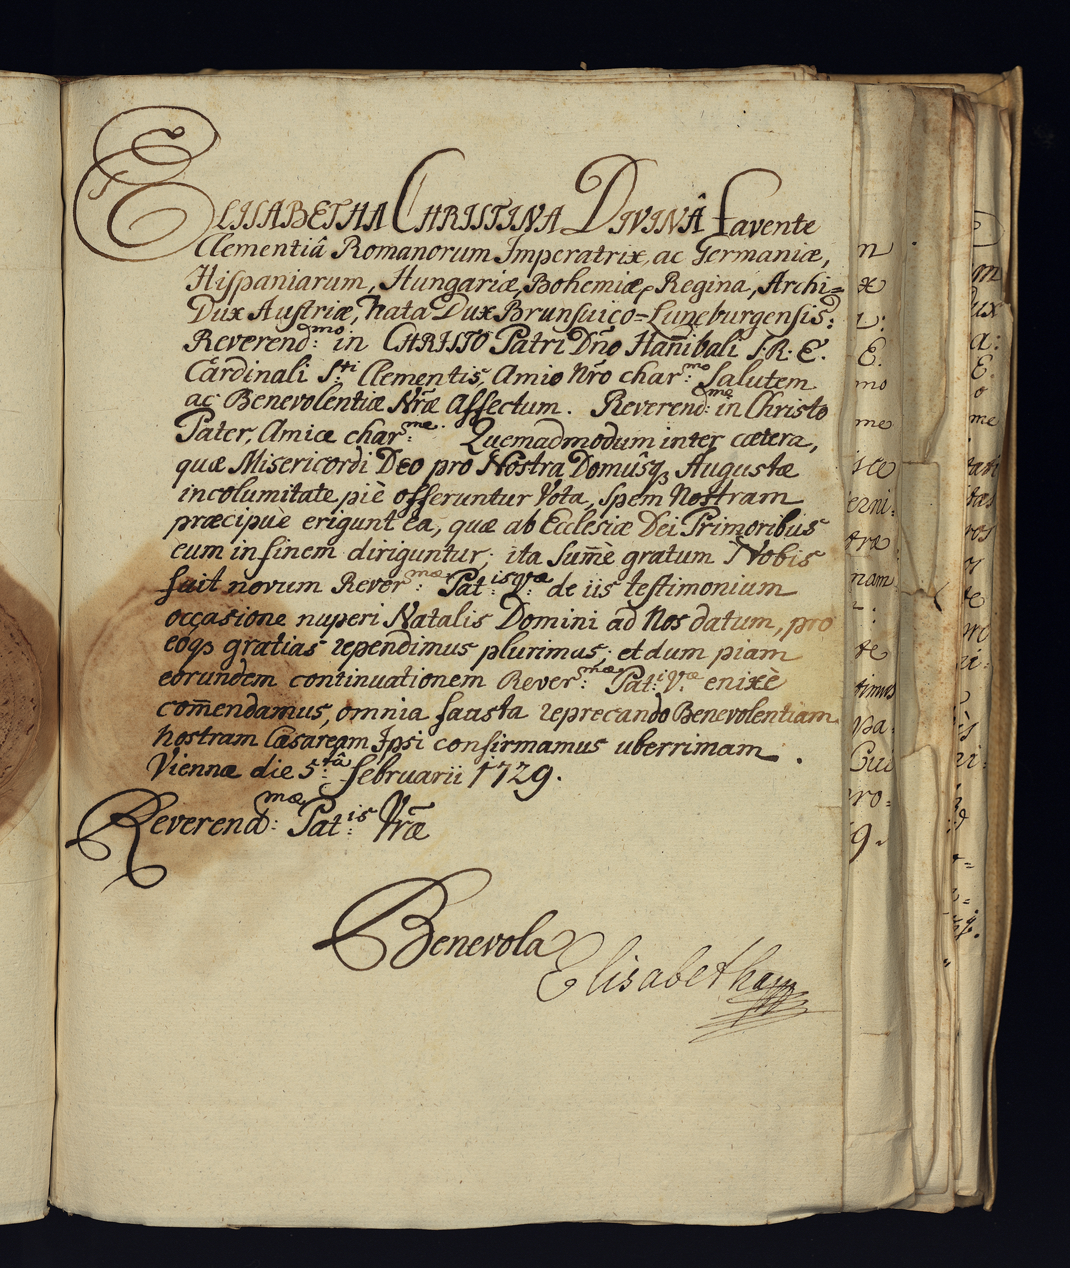 ELISABETHA CHRISTINA DIVINÂ favente
Clementiâ Romanorum Imperatrix, ac Germaniæ,
Hispaniarum, Hungariæ, Bohemiæq Regina, Archi=
Dux Austriæ, Nata Dux Brunsuico=Luneburgensis;
Reverend:mo in CHRISTO Patri Dño Hañibali S. R. E.
Cardinali S:ti Clementis, Amio Nr̃o char:mo Salutem
ac Benevolentiæ Nr̃æ Affectum. Reverend:me in Christo
Pater, Amice char:me. Quemadmodum inter cætera,
quæ Misericordi Deo pro Nostra Domûsq Augustæ
incolumitate piè offeruntur Vota, Spem Nostram
præcipuè erigunt ea, quæ ab Ecclesiæ Dei Primoribus
eum in finem diriguntur; ita Sum̃è gratum Nobis
fuit novum Rever:mæ Pat:is V:æ de iis testimonium
occasione nuperi Natalis Domini ad Nos datum, pro
eoq gratias rependimus plurimas; et dum piam
eorundem continuationem Rever:mæ Pat:i V:æ enixè
com̃endamus, omnia fausta reprecando Benevolentiam
Nostram Cæsaream Ipsi confirmamus uberrimam.
Viennæ die 5:tâ Februarii 1729.
Reverend:mæ Pat:is Vr̃æ
Benevola
Elisabetha